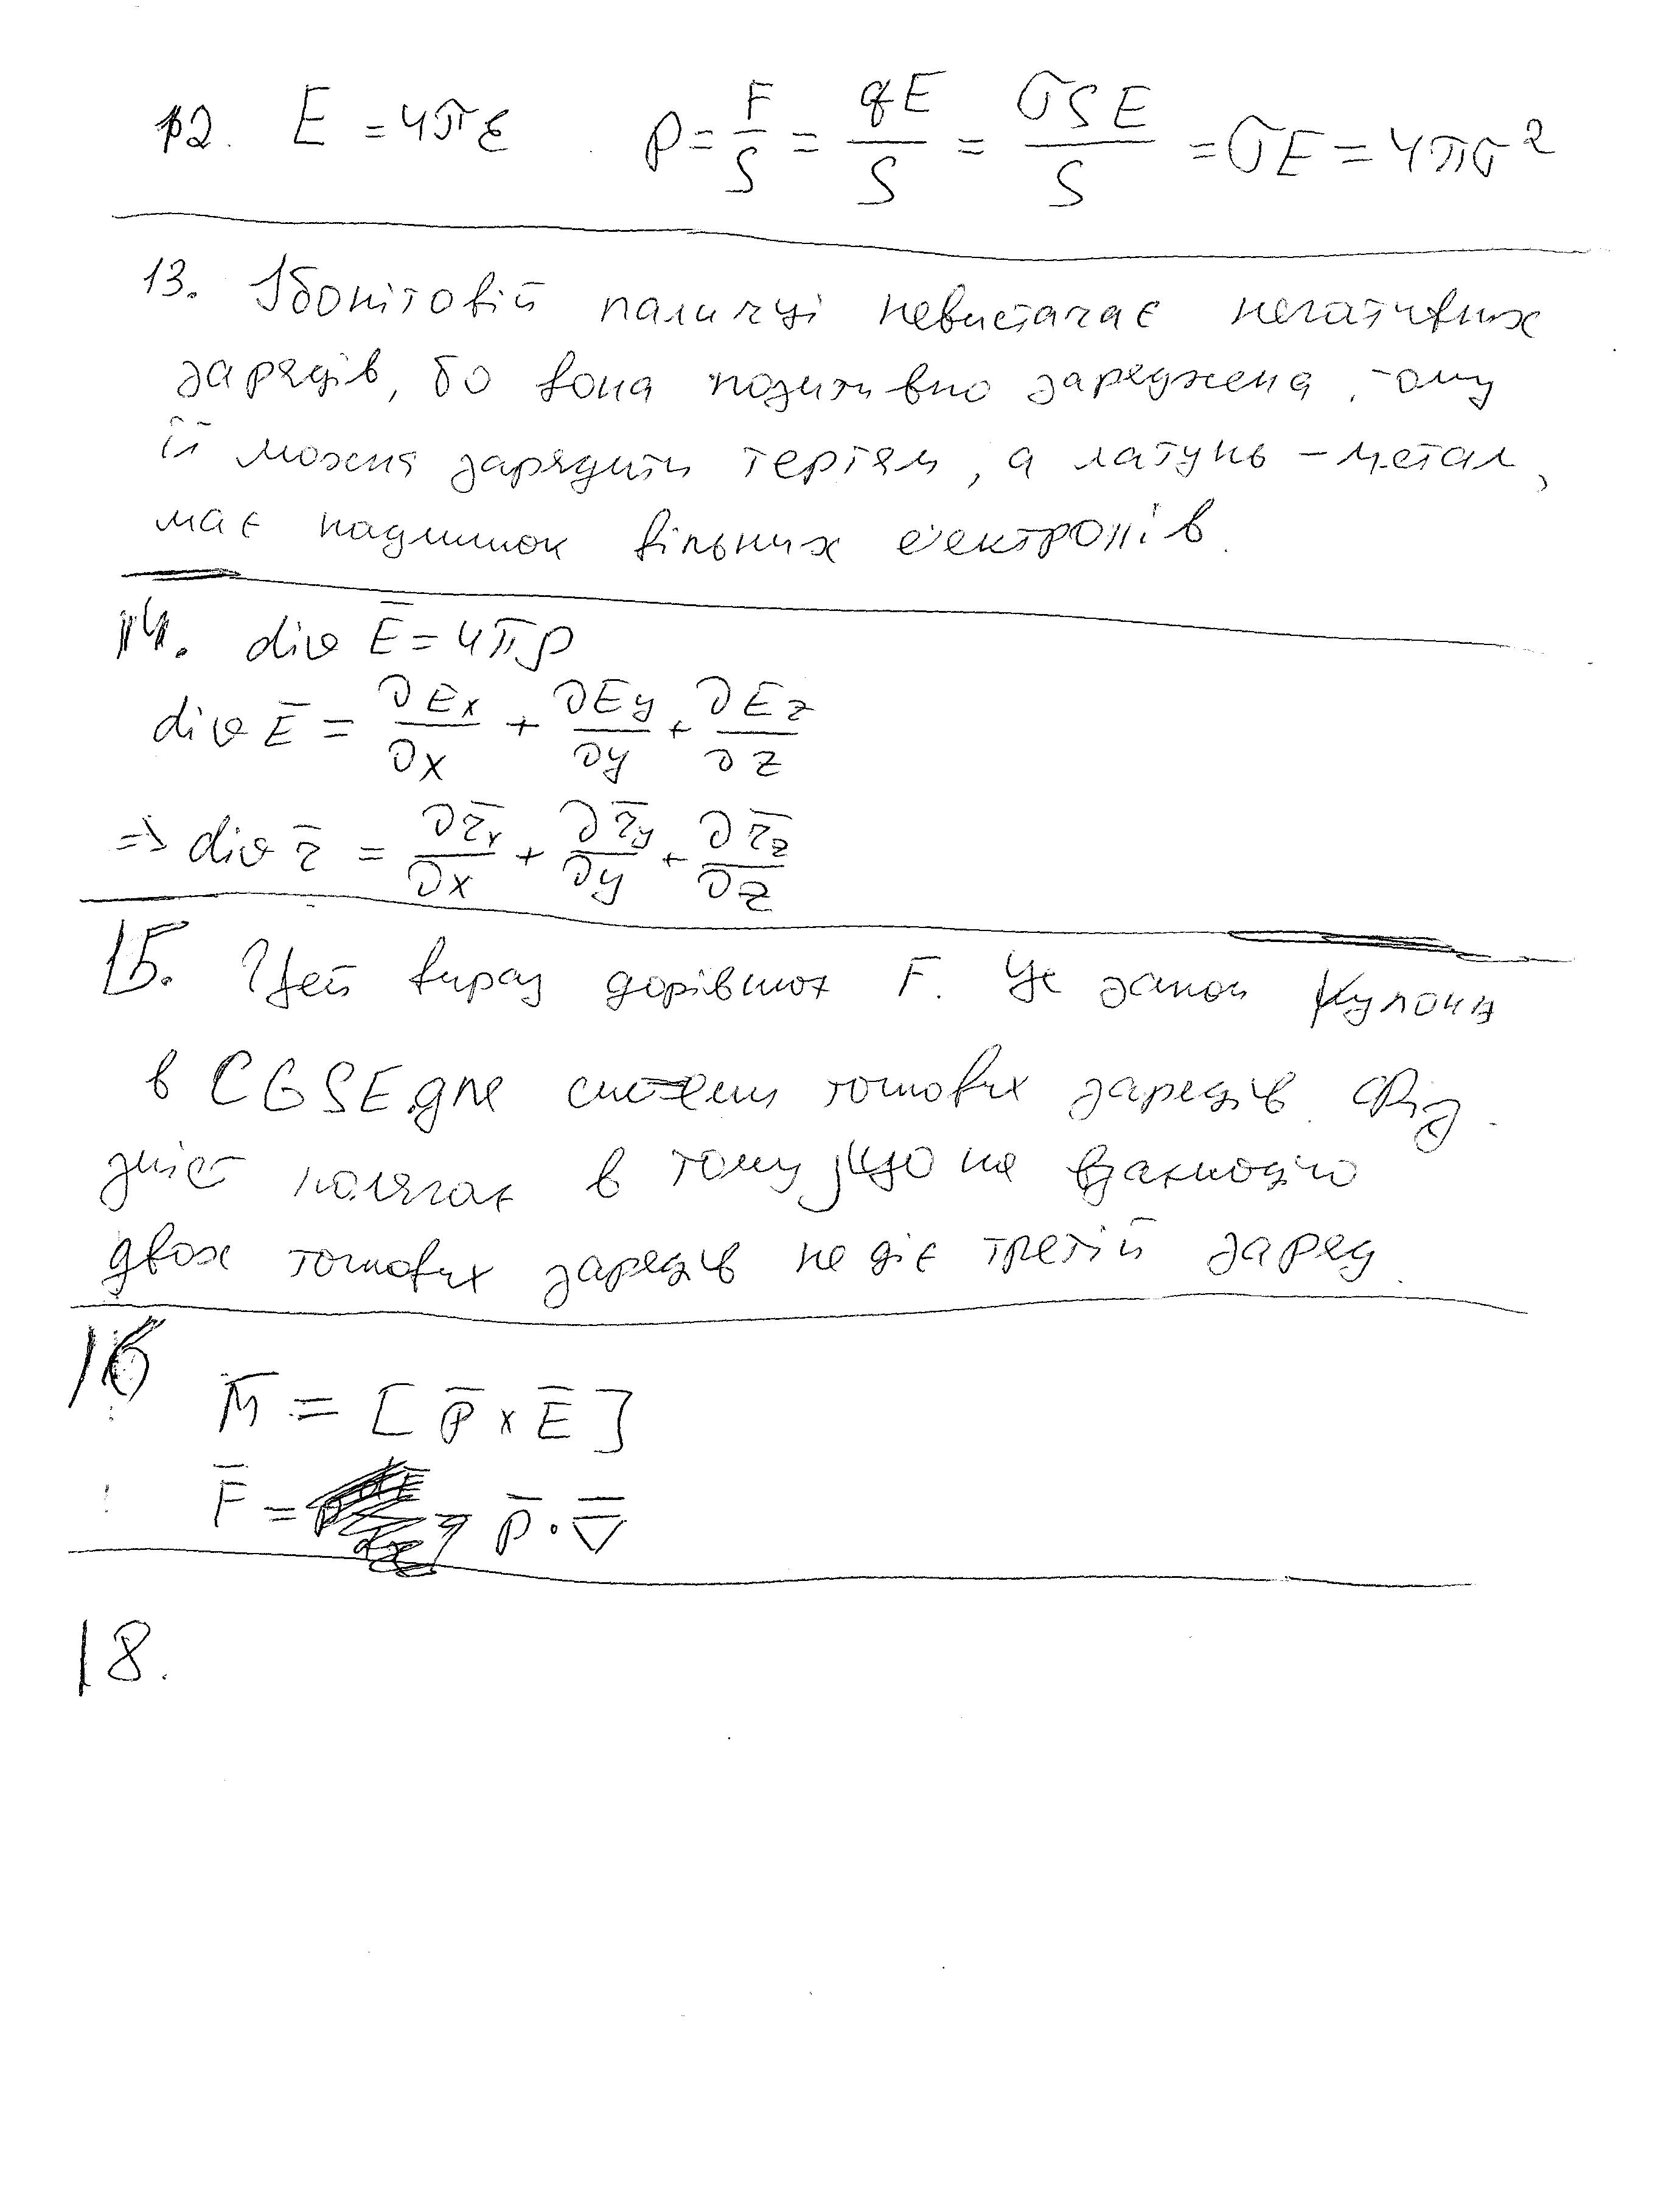 12. E = 4πε p = F/S = qE/S = σSE/S = σE = 4πσ²
13. Ебонітовій паличці невистачає негативних
зарядів, бо вона позитивно заряджена, тому
її можна зарядити тертям, а латунь – метал,
має надлишок вільних електронів.
14. div E̅ = 4πρ
div E̅ = ∂Ex/∂x + ∂Ey/∂y + ∂Ez/∂z
=> div r̅ = ∂r̅x/∂x + ∂r̅y/∂y + ∂r̅z/∂z
15. Цей вираз дорівнює F. Це закон Кулона
в CGSE для системи точкових зарядів. Фіз.
зміст полягає в тому, що на взаємодію
двох точкових зарядів не діє третій заряд.
16
M̅ = [p̅ × E̅]
F̅ = p̅ · ∇̅
18.